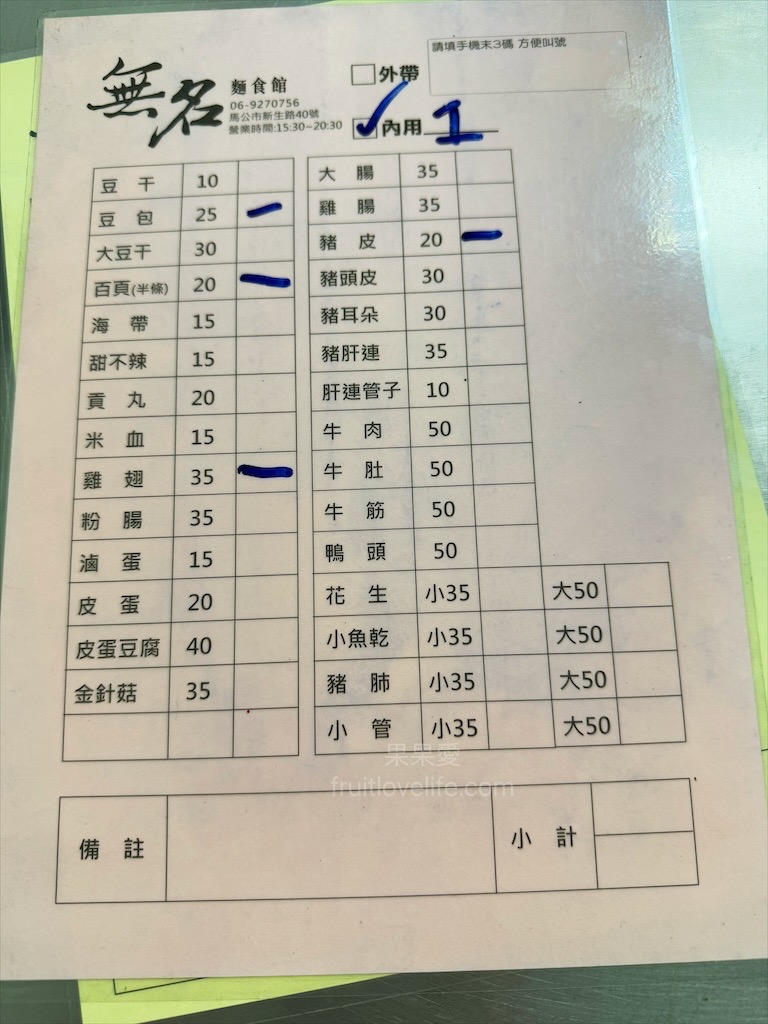 無名 麵食館
06-9270756
馬公市新生路40號
營業時間:15:30~20:30
外帶
請填手機末3碼 方便叫號
內用 1
豆干 10
豆包 25
大豆干 30
百頁(半條) 20
海帶 15
甜不辣 15
貢丸 20
米血 15
雞翅 35
粉腸 35
滷蛋 15
皮蛋 20
皮蛋豆腐 40
金針菇 35
大腸 35
雞腸 35
豬皮 20
豬頭皮 30
豬耳朵 30
豬肝連 35
肝連管子 10
牛肉 50
牛肚 50
牛筋 50
鴨頭 50
花生 小35 大50
小魚乾 小35 大50
豬肺 小35 大50
小管 小35 大50
果果愛
fruitlovelife.com
備註
小計